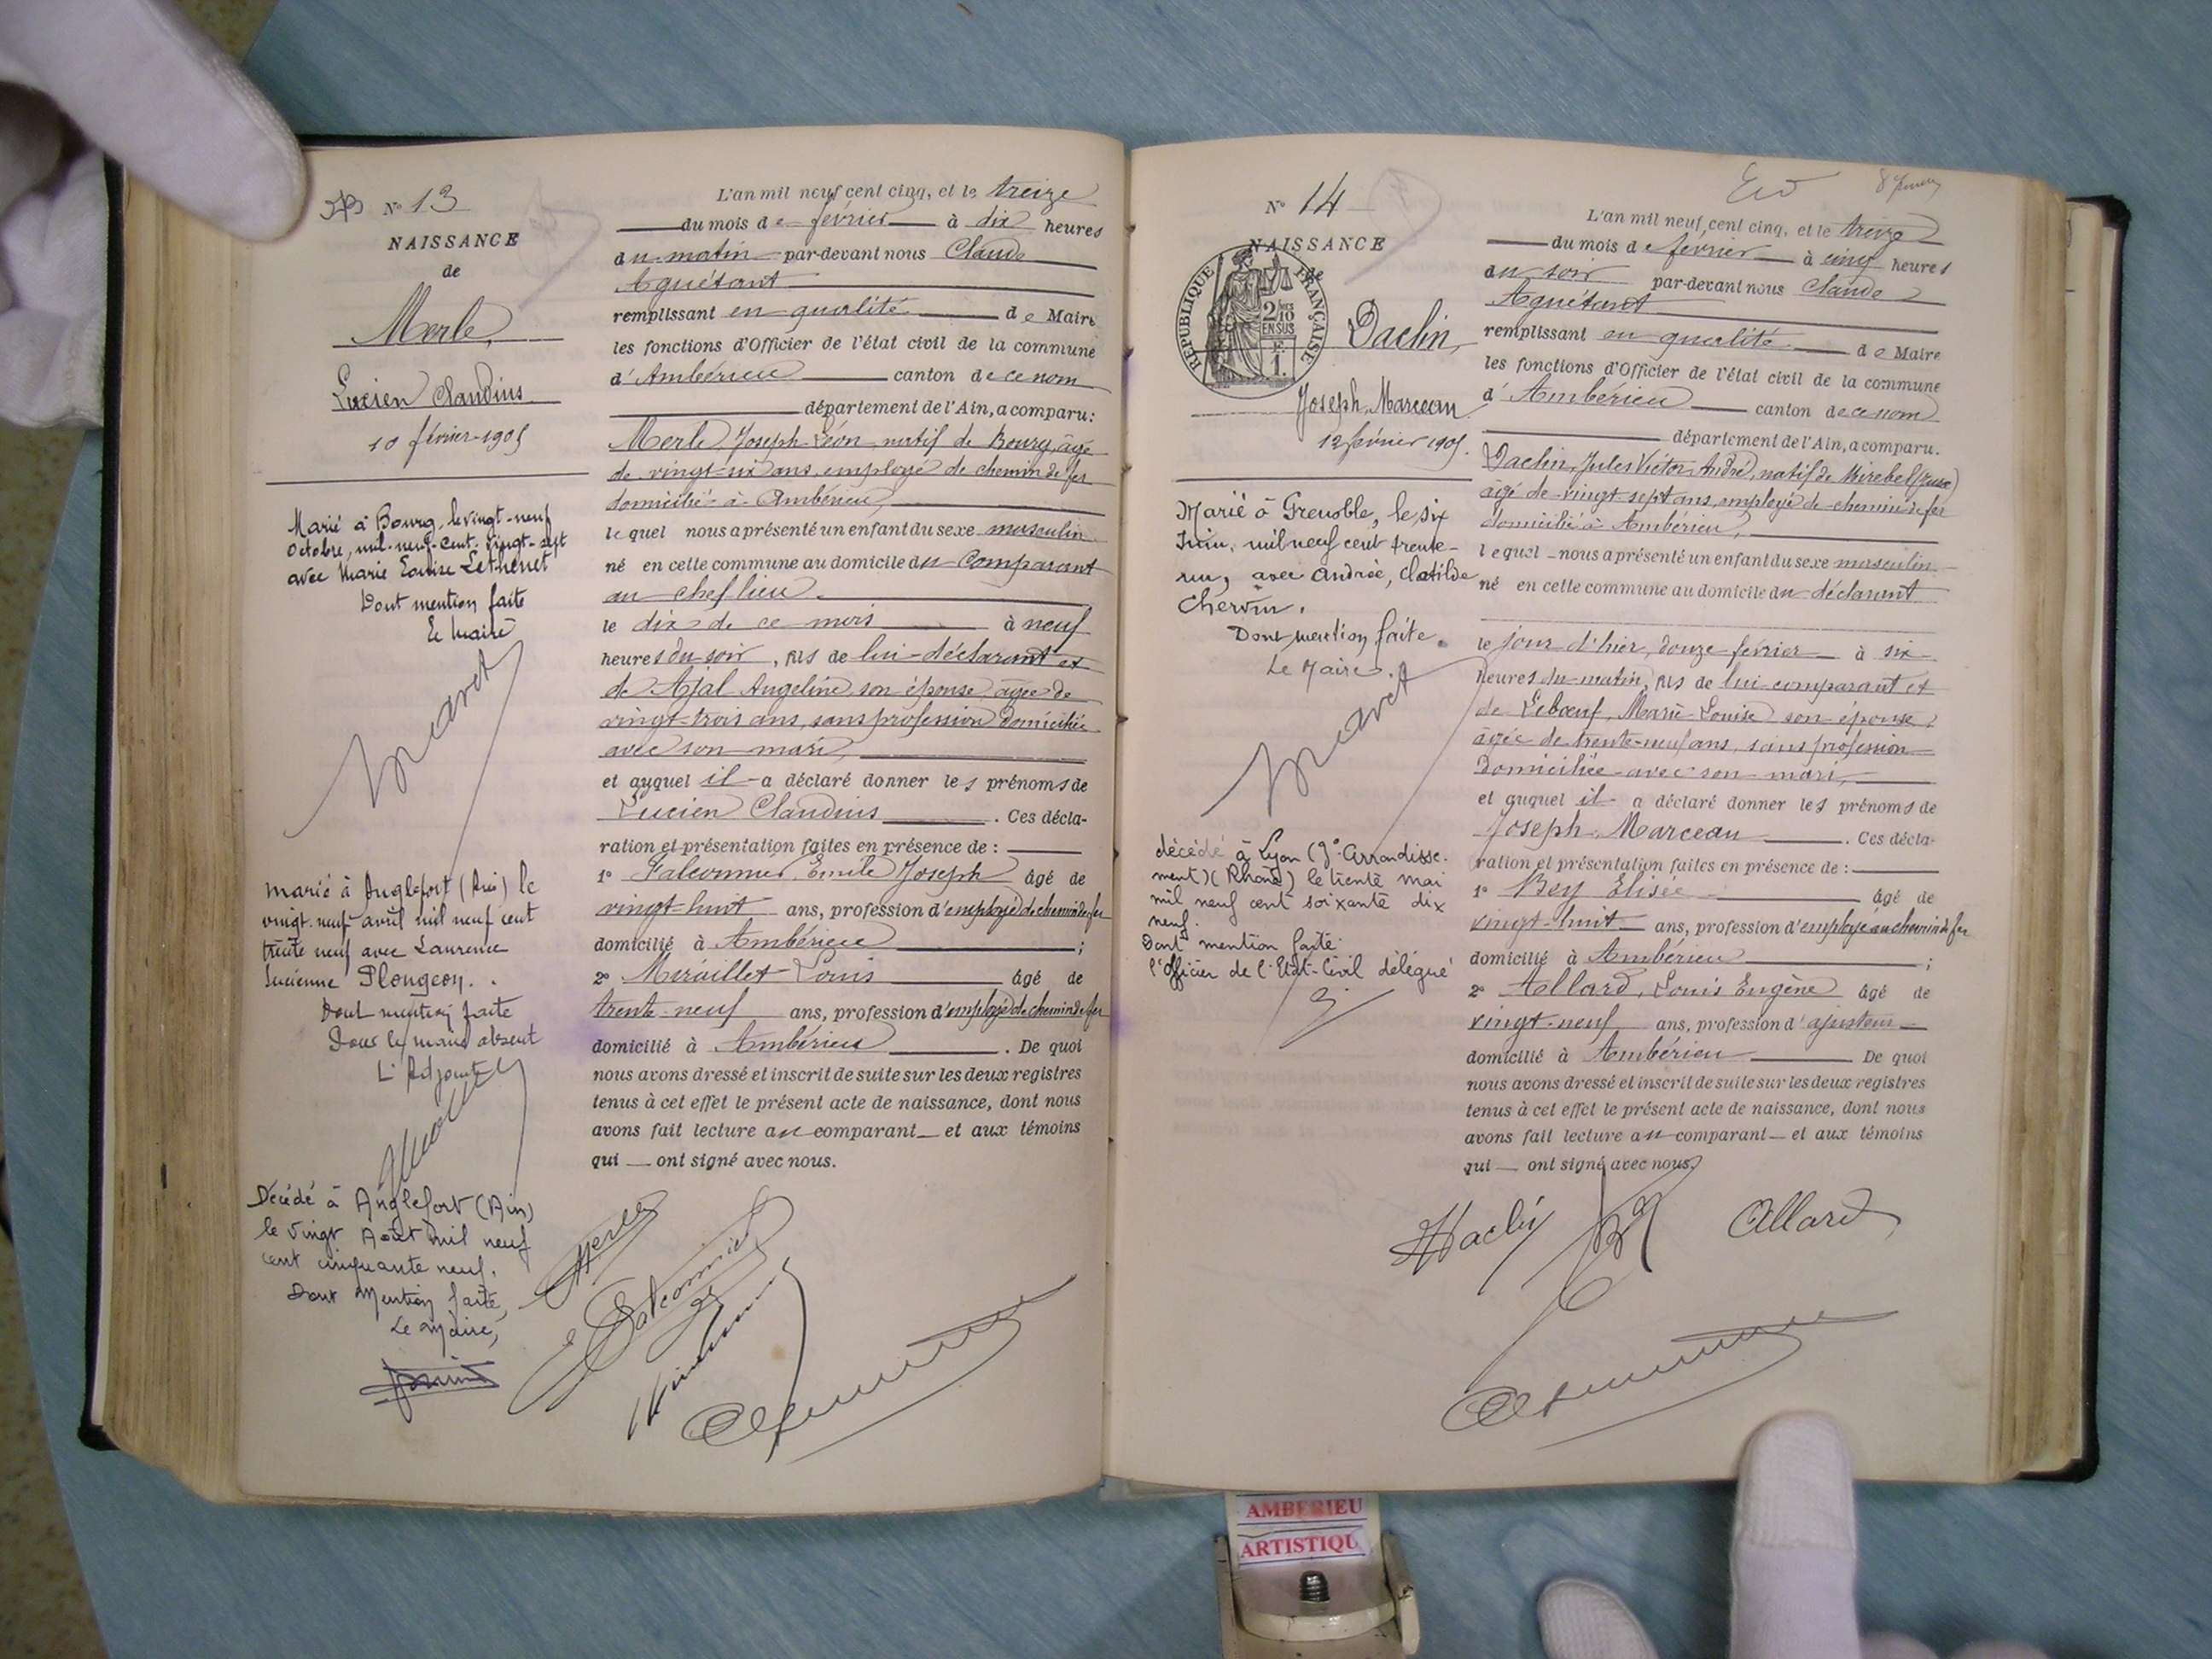 N° 13
NAISSANCE
de
Merle,
Lucien Claudius
10 février 1905
Marié à Bourg, le vingt-neuf
Octobre, mil-neuf-cent-vingt-sept
avec Marie Louise
Dont mention faite
Le Maire
Maret
marié à Anglefort (Ain) le
vingt-neuf avril mil neuf cent
trente neuf avec Laurence
Lucienne Plongeon.
Dont mention faite
Pour le maire absent
L'Adjoint
Décédé à Anglefort (Ain)
le vingt Août mil neuf
cent cinquante neuf.
Dont Mention faite,
Le Maire,
L'an mil neuf cent cinq, et le treize
du mois de février à dix heures
du matin par-devant nous Claude
Aguétant
remplissant en qualité de Maire
les fonctions d'Officier de l'état civil de la commune
d'Ambérieu canton de ce nom
département de l'Ain, a comparu:
Merle, Joseph Léon natif de Bourg, âgé
de vingt-six ans employé de chemin de fer
domicilié à Ambérieu,
lequel nous a présenté un enfant du sexe masculin
né en cette commune au domicile du Comparant
au chef lieu.
le dix de ce mois à neuf
heures du soir, fils de lui déclarant et
de Ajal Angeline son épouse âgée de
vingt-trois ans, sans profession domiciliée
avec son mari,
et auquel il a déclaré donner les prénoms de
Lucien Claudius. Ces décla-
ration et présentation faites en présence de :
1° Falconnier, Emile Joseph âgé de
vingt-huit ans, profession d'employé de chemin de fer
domicilié à Ambérieu ;
2° Miraillet Louis âgé de
trente-neuf ans, profession d'employé de chemin de fer
domicilié à Ambérieu. De quoi
nous avons dressé et inscrit de suite sur les deux registres
tenus à cet effet le présent acte de naissance, dont nous
avons fait lecture au comparant et aux témoins
qui ont signé avec nous.
Merle
E Falconnier
N° 14
NAISSANCE
de
RÉPUBLIQUE FRANÇAISE
2/10 EN SUS
F. 1.
Daclin,
Joseph Marceau
12 février 1905.
Marié à Grenoble, le six
Juin, mil neuf cent trente-
un, avec Andrée, Clotilde
Chervin.
Dont mention faite.
Le Maire.
Maret
décédé à Lyon (3° Arrondisse-
ment) (Rhône) le trente mai
mil neuf cent soixante dix
neuf.
Dont mention faite
l'Officier de l'Etat-Civil délégué
L'an mil neuf cent cinq, et le treize
du mois de février, à cinq heures
du soir par-devant nous Claude
Aguétant
remplissant en qualité de Maire
les fonctions d'Officier de l'état civil de la commune
d'Ambérieu canton de ce nom
département de l'Ain, a comparu.
Daclin, Jules Victor André, natif de Mirebel (Jura)
âgé de vingt sept ans, employé de chemin de fer
domicilié à Ambérieu,
lequel nous a présenté un enfant du sexe masculin
né en cette commune au domicile du déclarant
le jour d'hier, douze février à six
heures du matin, fils de lui comparant et
de Lebœuf, Marie-Louise son épouse,
âgée de trente-neuf ans, sans profession
domiciliée avec son mari,
et auquel il a déclaré donner les prénoms de
Joseph Marceau. Ces décla-
ration et présentation faites en présence de :
1° Bey Elisée âgé de
vingt-huit ans, profession d'employé au chemin de fer
domicilié à Ambérieu ;
2° Allard, Louis Eugène âgé de
vingt-neuf ans, profession d'ajusteur
domicilié à Ambérieu De quoi
nous avons dressé et inscrit de suite sur les deux registres
tenus à cet effet le présent acte de naissance, dont nous
avons fait lecture au comparant et aux témoins
qui ont signé avec nous.
Allard
AMBERIEU
ARTISTIQU